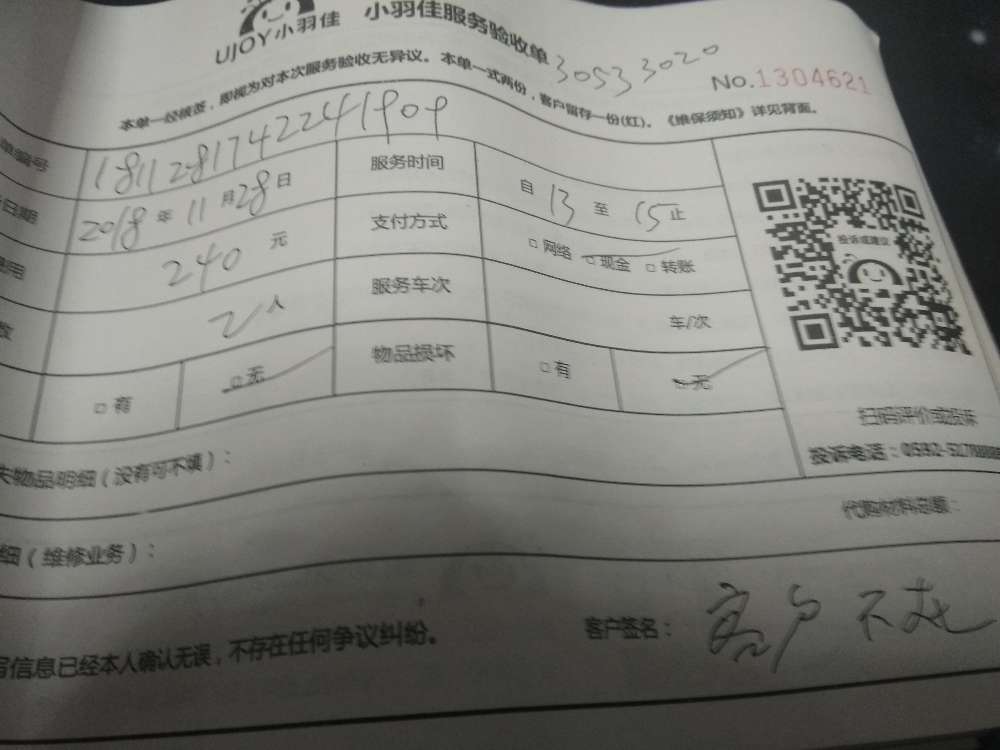 UJOY小羽佳 小羽佳服务验收单 30533020
No.1304621
本单一经核签，即视为对本次服务验收无异议。本单一式两份，客户留存一份(红)。《维保须知》详见背面。
单编号 1811281742241909 服务时间 自 13 至 15 止
日期 2018 年 11 月 28 日 支付方式 □ 网络 □ 现金 □ 转账
费用 240 元 服务车次 车/次
数 2 人 物品损坏 □ 有 □ 无
□ 有 □ 无
投诉或建议
扫码评价或投诉
失物品明细（没有可不填）：
投诉电话：0592-5178888
代购材料总额：
细（维修业务）：
写信息已经本人确认无误，不存在任何争议纠纷。
客户签名： 客户不在